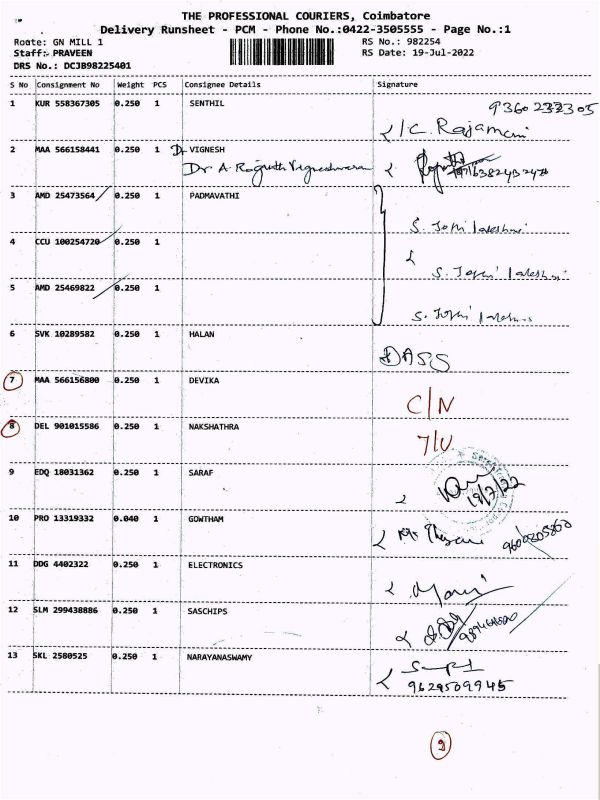 THE PROFESSIONAL COURIERS, Coimbatore
Delivery Runsheet - PCM - Phone No.:0422-3505555 - Page No.:1
Route: GN MILL 1
RS No.: 982254
Staff: PRAVEEN
RS Date: 19-Jul-2022
DRS No.: DCJB98225401
S No Consignment No Weight PCS Consignee Details Signature
1 KUR 558367305 0.250 1 SENTHIL
C. Rajamani
2 MAA 566158441 0.250 1 Dr VIGNESH
Dr A.
3 AMD 25473564 0.250 1 PADMAVATHI
S.
4 CCU 100254720 0.250 1
S.
5 AMD 25469822 0.250 1
S.
6 SVK 10289582 0.250 1 HALAN
DASS
7 MAA 566156800 0.250 1 DEVIKA
C/N
8 DEL 901015586 0.250 1 NAKSHATHRA
9 EDQ 18031362 0.250 1 SARAF
19/7/22
10 PRO 13319332 0.040 1 GOWTHAM
11 DDG 4402322 0.250 1 ELECTRONICS
12 SLM 299438886 0.250 1 SASCHIPS
13 SKL 2580525 0.250 1 NARAYANASWAMY
9629509945